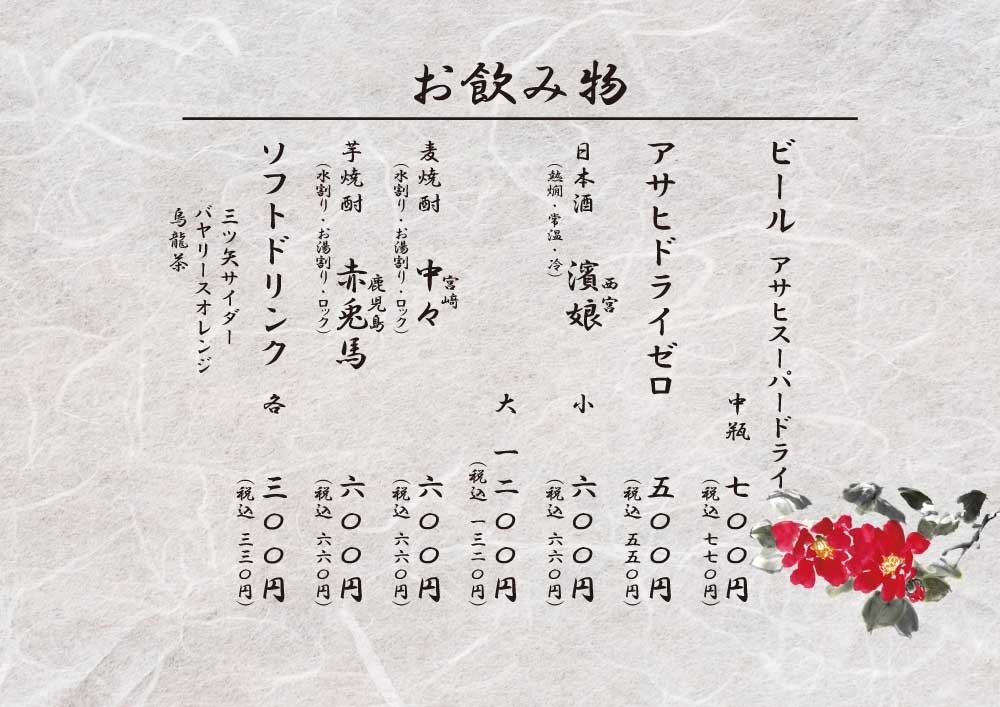 お飲み物
ビール アサヒスーパードライ
中瓶 七〇〇円
(税込 七七〇円)
アサヒドライゼロ 五〇〇円
(税込 五五〇円)
西宮
日本酒 濱娘 小 六〇〇円
(熱燗・常温・冷) (税込 六六〇円)
大 一二〇〇円
(税込 一三二〇円)
宮﨑
麦焼酎 中々 六〇〇円
(水割り・お湯割り・ロック) (税込 六六〇円)
鹿児島
芋焼酎 赤兎馬 六〇〇円
(水割り・お湯割り・ロック) (税込 六六〇円)
ソフトドリンク 各 三〇〇円
(税込 三三〇円)
三ツ矢サイダー
バヤリースオレンジ
烏龍茶